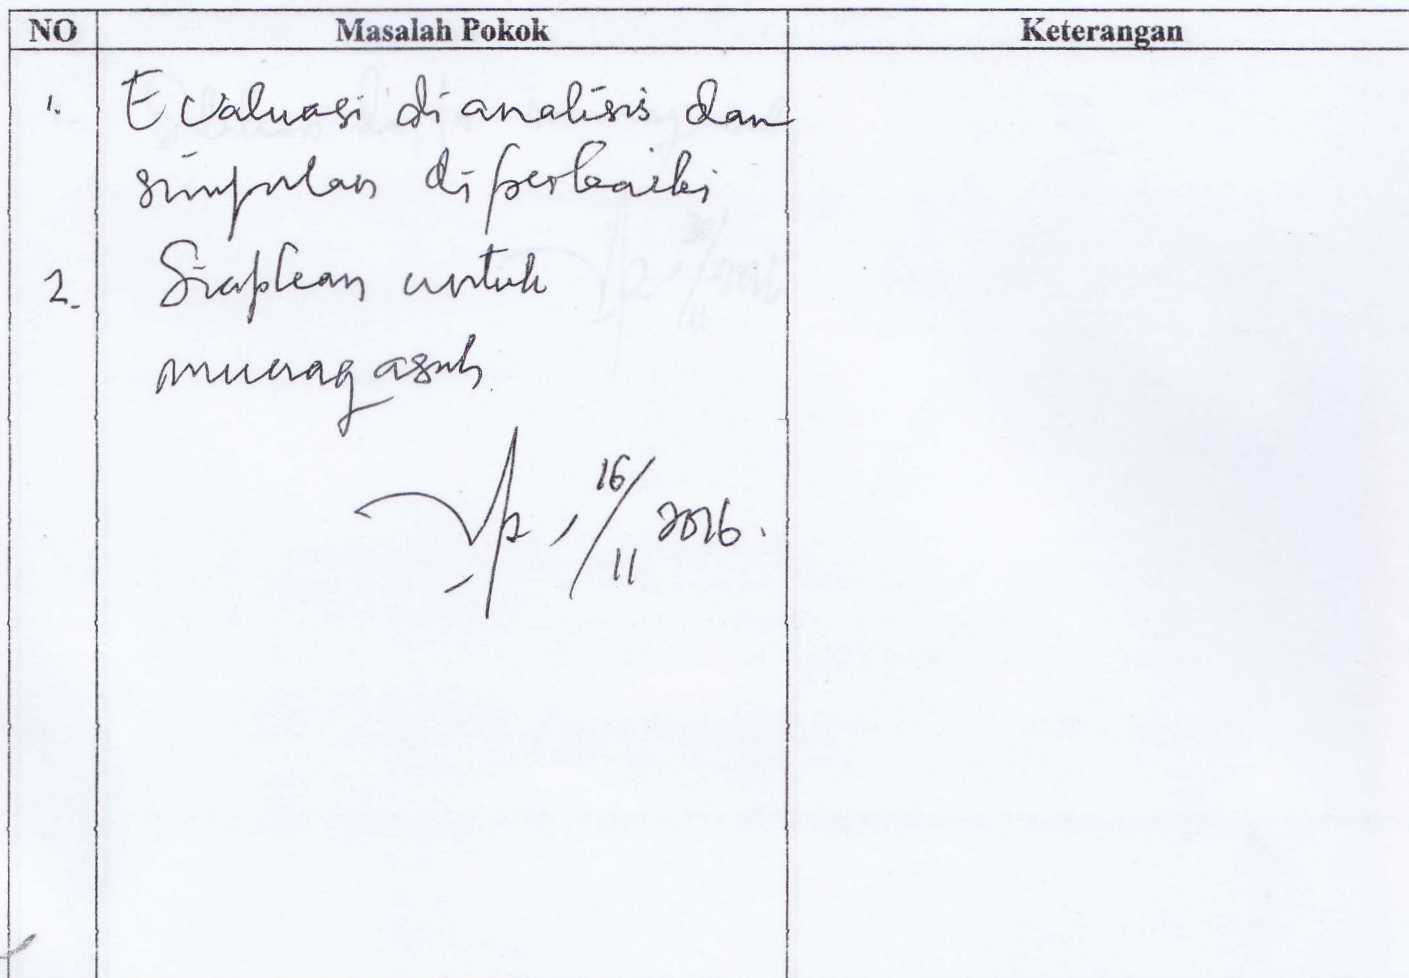 NO Masalah Pokok Keterangan
1. Evaluasi di analisis dan
simpulan diperbaiki
2. Siapkan untuk
munaqasah
16/11 2016.